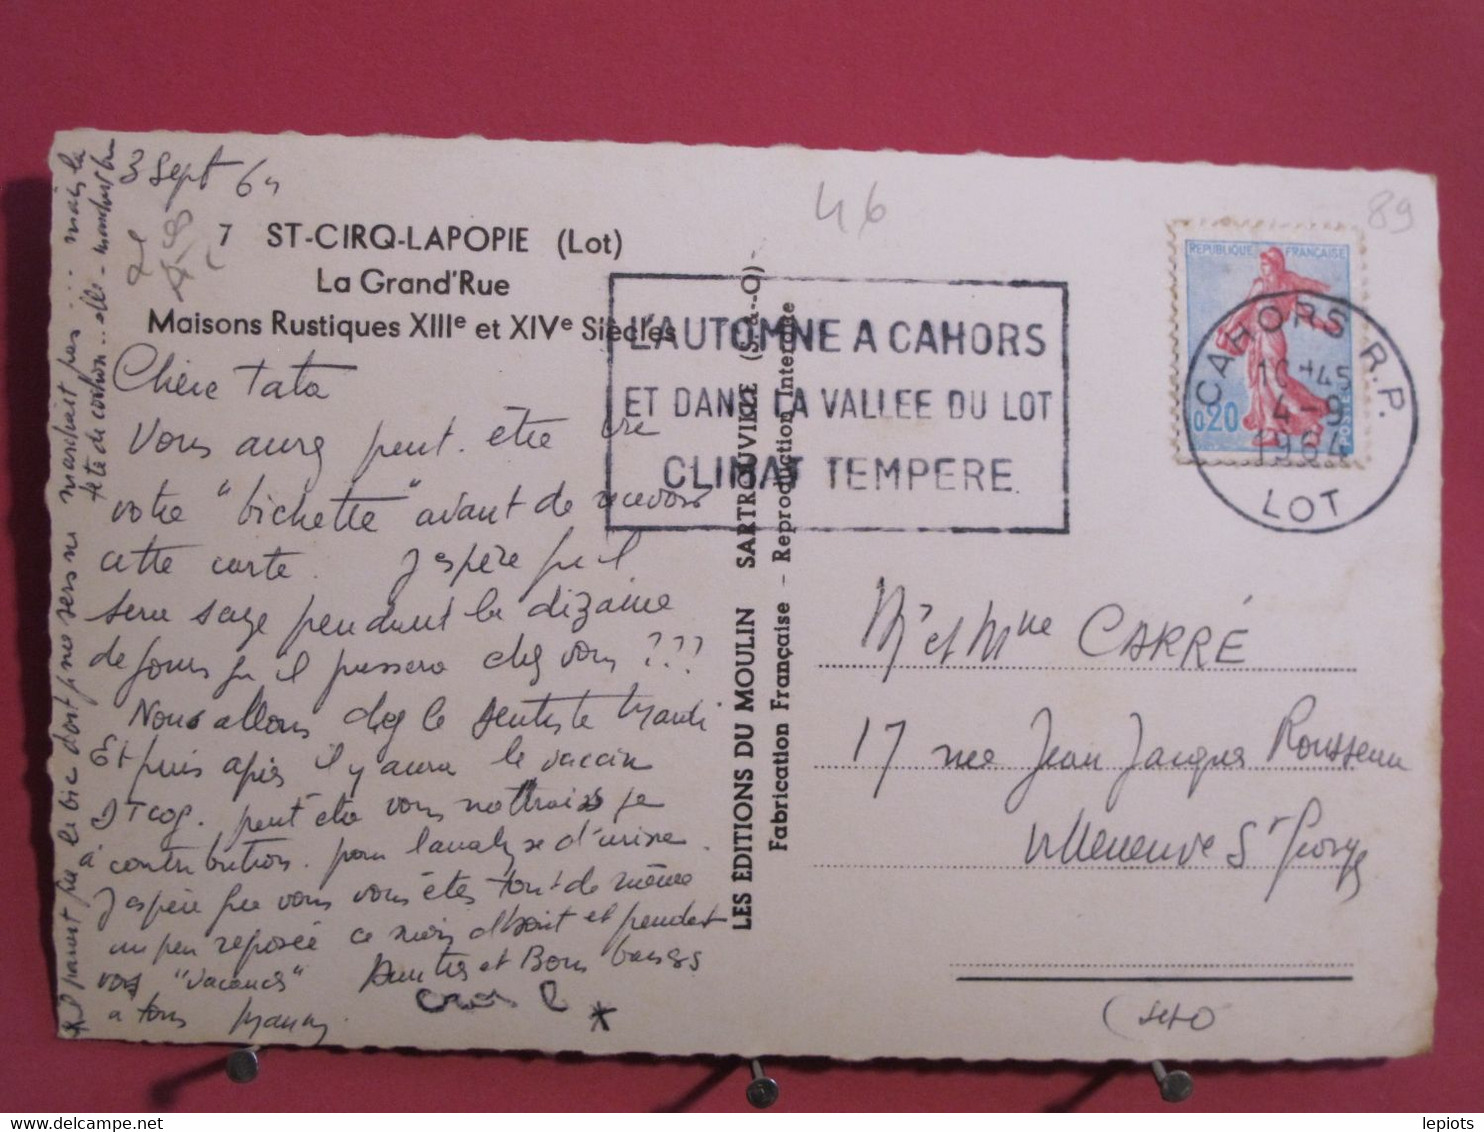 3 Sept 64
46
89
7 ST-CIRQ-LAPOPIE (Lot)
La Grand'Rue
Maisons Rustiques XIIIe et XIVe Siècles
Chère Tata
Vous aurez peut être
votre "bichette" avant de recevoir
cette carte. J'espère qu'il
sera sage pendant la dizaine
de jours qu'il passera chez vous ???
Nous allons chez le dentiste Mardi
Et puis après il y aura le vaccin
DTcoq. peut être vous
à contribution. pour l'analyse d'urine.
J'espère que vous vous êtes tout de même
un peu reposée ce mois d'Aout et pendant
vos "vacances" et Bons baisers
a tous
mais la
tête de cochon... elle - marchait
L'AUTOMNE A CAHORS
ET DANS LA VALLEE DU LOT
CLIMAT TEMPERE
LES EDITIONS DU MOULIN SARTROUVILLE (S.-&-O)
Fabrication Française - Reproduction Interdite
REPUBLIQUE FRANÇAISE
0,20
POSTES
CAHORS R.P.
16H45
4-9
1964
LOT
Mr et Mme CARRÉ
17 rue Jean Jacques Rousseau
Villeneuve St Georges
lepiots